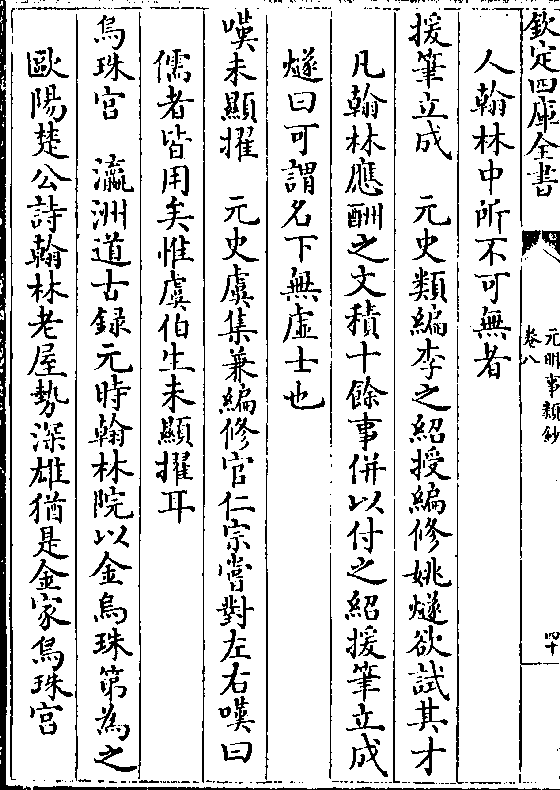 欽定四庫全書
元明事類鈔
卷八
四十
人翰林中所不可無者
援筆立成　元史類編李之紹授編修姚燧欲試其才
凡翰林應酬之文積十餘事併以付之紹援筆立成
燧曰可謂名下無虛士也
嘆未顯擢　元史虞集兼編修官仁宗嘗對左右嘆曰
儒者皆用矣惟虞伯生未顯擢耳
烏珠宮　瀛洲道古録元時翰林院以金烏珠第為之
歐陽楚公詩翰林老屋勢深雄猶是金家烏珠宮